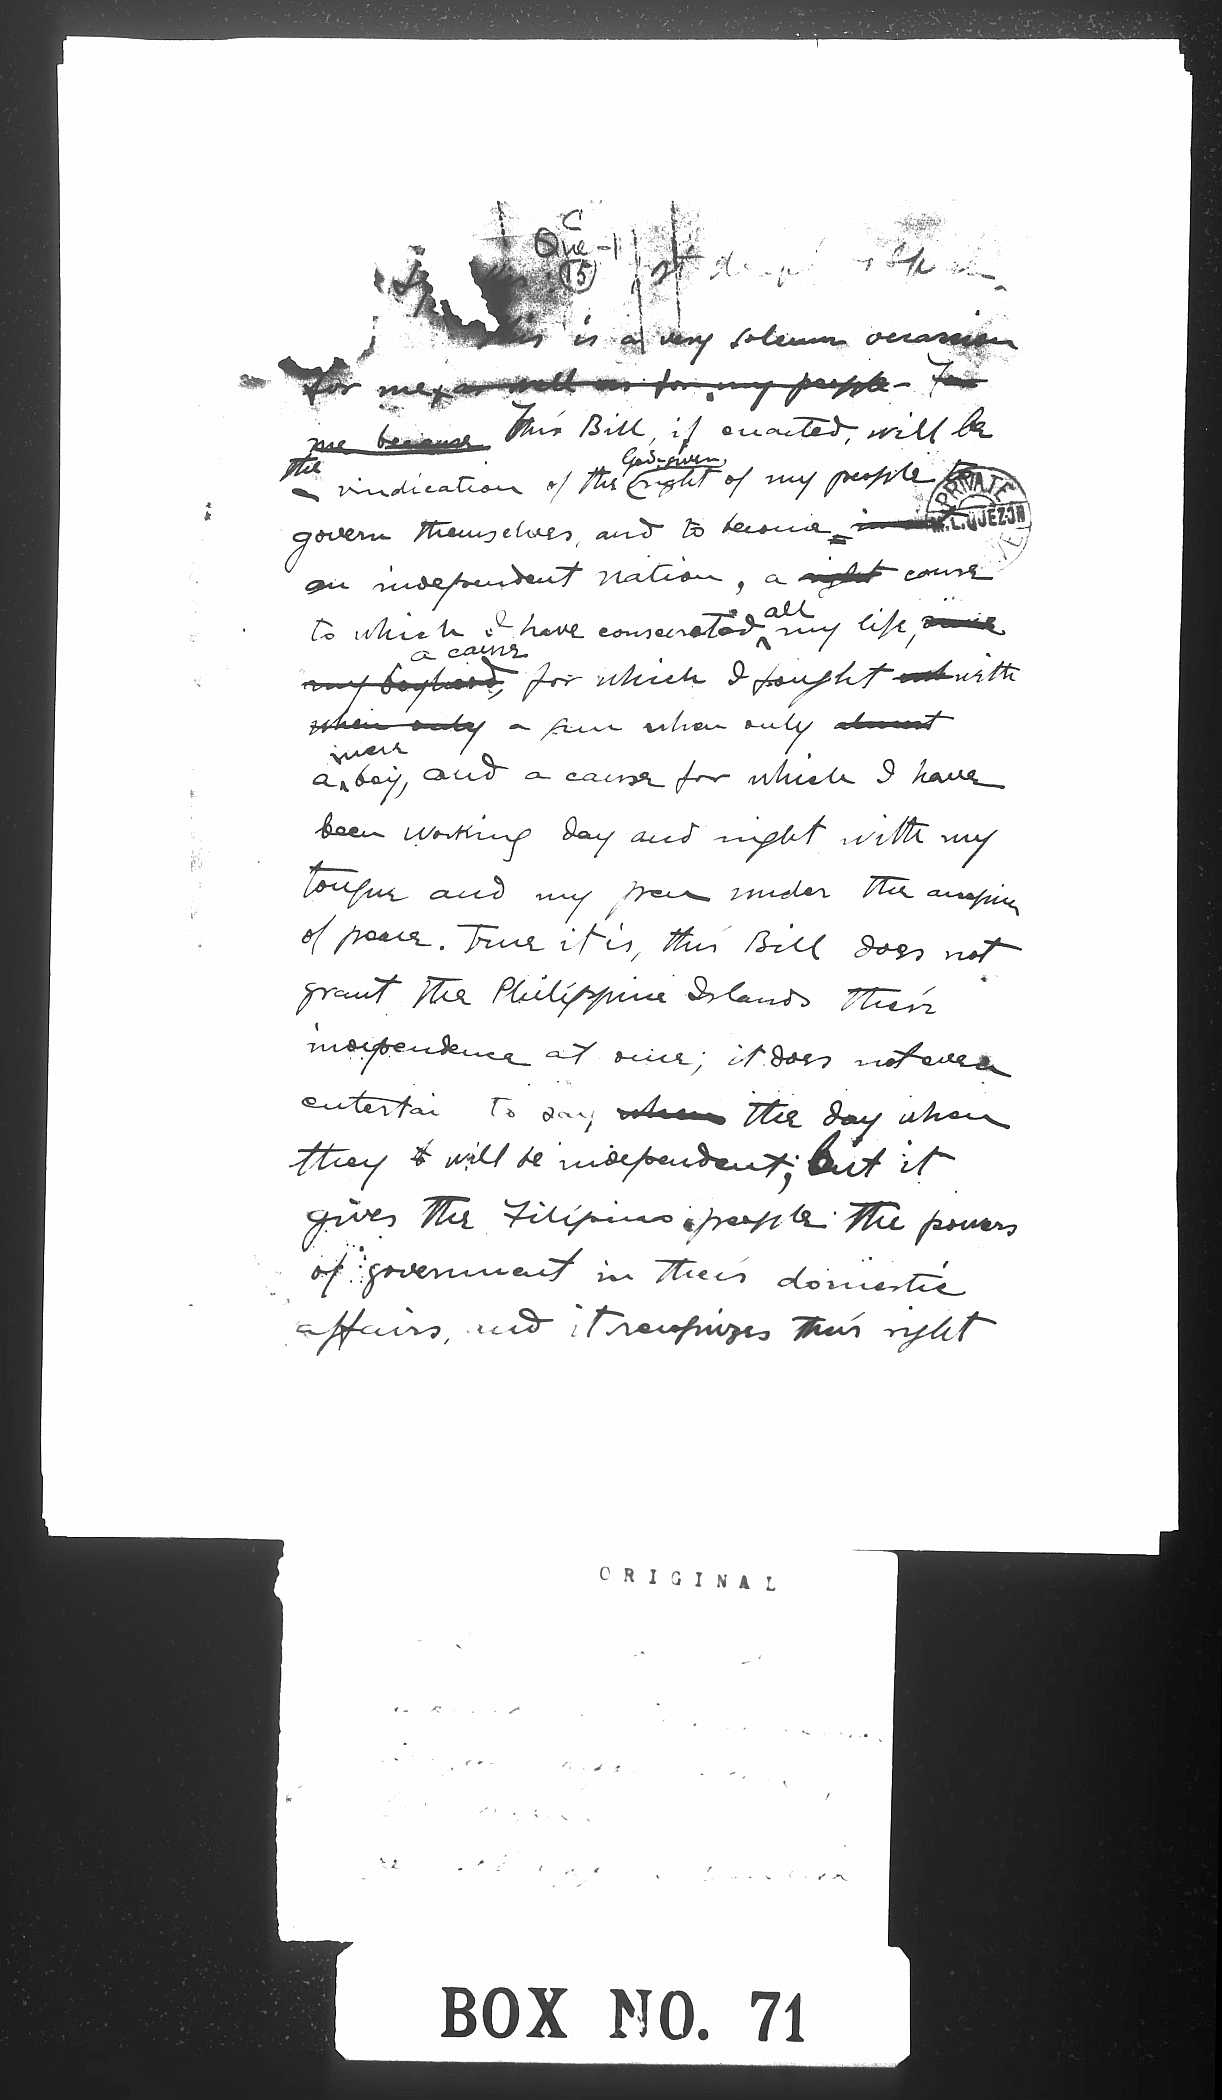 C
Que-1
15
is a very solemn occasion
for me, as well as for my people - For
me because This Bill, if enacted, will be
the vindication of the God-given right of my people to
PRIVATE
M.L. QUEZON
govern themselves, and to become
an independent nation, a right cause
to which I have consecrated all my life, since
my boyhood, a cause for which I fought with
when only a gun when only almost
a mere boy, and a cause for which I have
been working day and night with my
tongue and my pen under the auspices
of peace. True it is, this Bill does not
grant the Philippine Islands their
independence at once; it does not even
to say when the day when
they will be independent; but it
gives the Filipino people the powers
of government in their domestic
affairs, and it recognizes their right
ORIGINAL
BOX NO. 71